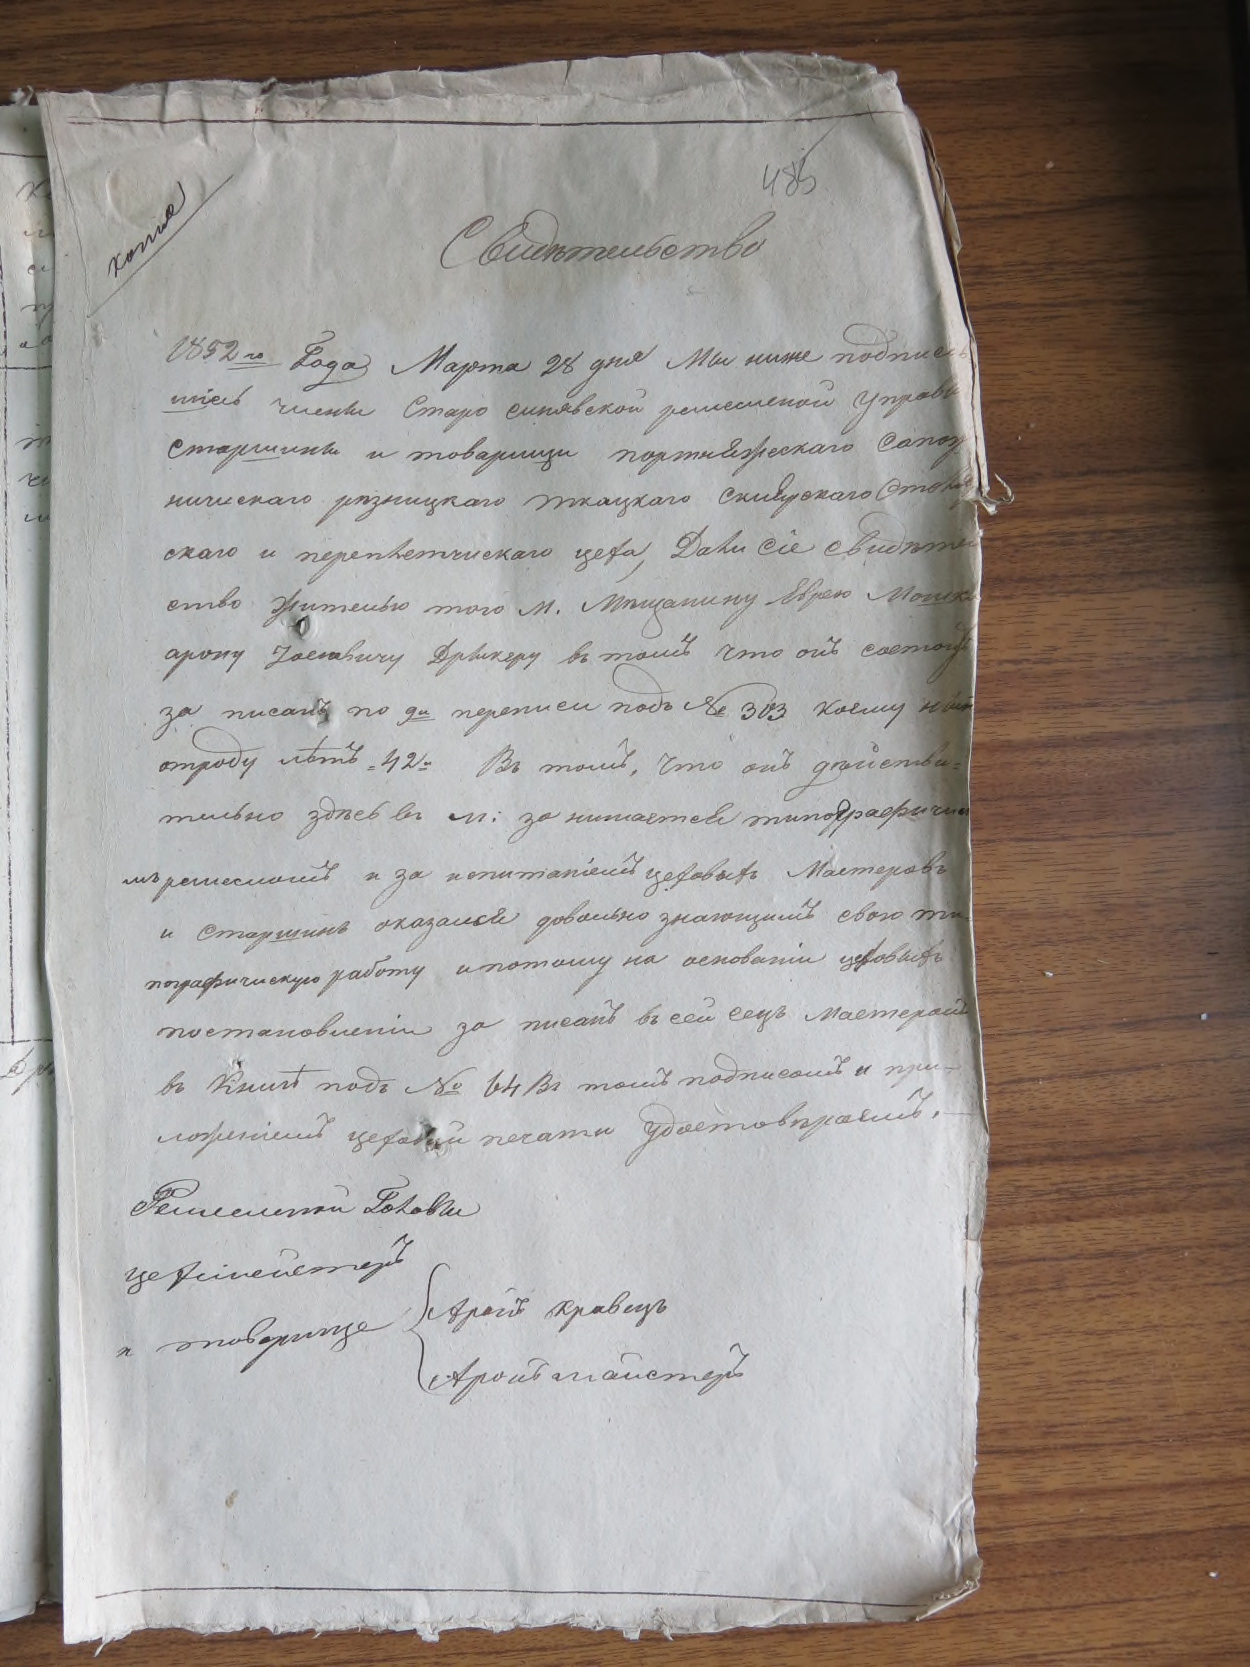 485
копія
Свидѣтельство
1852го Года Марта 28 дня Мы ниже подписав
шіеся члены Старо синявской ремесленой Управы
Старшины и товарищи портняжескаго Сапож
ническаго рѣзницкаго ткацкаго скнярскаго Столяр
скаго и переплетчискаго цеха, Дали Сіе свидѣтель
ство жителю того м. Мѣщанину Еврею Мошкѣ
арону Іосіовичу Друкеру въ томъ что онъ состоитъ
за писанъ по 9й переписи подъ № 303 коему нынѣ
отроду лѣтъ 42. Въ томъ, что онъ дѣйстви=
тельно здѣсь въ м: за нимается типографически
мъ ремесломъ и за испитаніемъ цеховыхъ Мастеровъ
и Старшинъ оказался довольно знающимъ свою ти-
пографическую работу и потому на основаніи цеховыхъ
постановленіи за писанъ въ сей цехъ Мастеромъ
въ Книгѣ подъ № 64 Въ томъ подписомъ и при-
ложеніемъ цеховой печати удостовѣряемъ.
Ремесленной Головы
цехмейстеръ
и товарище
Аронъ Кравецъ
Аронъ майстеръ